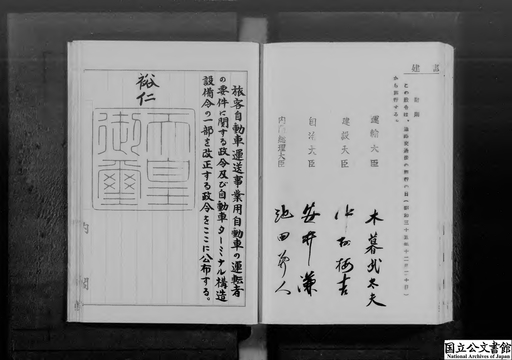 旅客自動車運送事業用自動車の運転者
の要件に関する政令及び自動車ターミナル構造
設備令の一部を改正する政令をここに公布する。
裕仁
天皇
御璽
内閣
附則
この政令は、
から施行する。
運輸大臣
建設大臣
自治大臣
内閣総理大臣
木暮武太夫
中村梅吉
安井謙
池田勇人
国立公文書館
National Archives of Japan